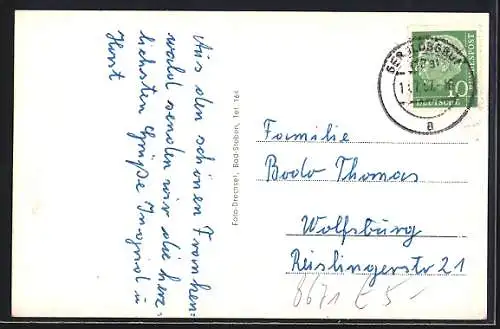 Aus den schönen Franken-
wald senden wir die herz-
lichsten Grüße Ingrid u
Horst
Foto-Drechsel, Bad-Steben, Tel. 164
10
BUNDESPOST
DEUTSCHE
a
Familie
Bodo Thomas
Wolfsburg
Reislingerstr 21
8671 £ 5-